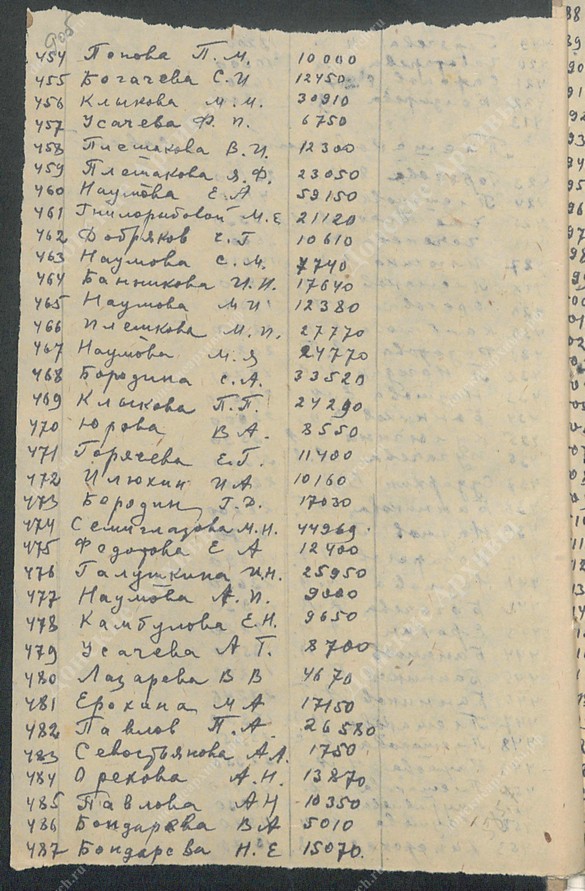 905
454 Попова П. М. 10000
455 Богачева С. И 12450
456 Клыкова М. И. 30910
457 Усачева Ф. П. 6750
458 Плешакова В. И. 12300
459 Плешакова Я. Ф. 23050
460 Наумова Е. А 59150
461 Гнилорыбовой М. Е 21120
462 Добряков Г. Г 10610
463 Наумова С. М. 7740
464 Банникова И. И. 17640
465 Наумова М И 12380
466 Плешкова М. П. 27770
467 Наумова М. Я 24770
468 Бородина С. А. 33520
469 Клыкова П. П. 24290
470 Юрова В А. 8550
471 Горячева Е. Г. 11400
472 Илюхин И А 10160
473 Бородин Т. Д. 17030
474 Семиглазова М. И. 44969
475 Федотова Е А 12400
476 Галушкина И. Н. 25950
477 Наумова А. П. 9000
478 Камбулова Е. Н. 9650
479 Усачева А Т. 8700
480 Лазарева В В 4670
481 Ерохина М А 17150
482 Павлов П. А 26580
483 Севостьянова А. А. 1750
484 Орехова А. Н. 13870
485 Павлова А Н 10350
486 Бондарева В А 5010
487 Бондарева Н. Е 15070.